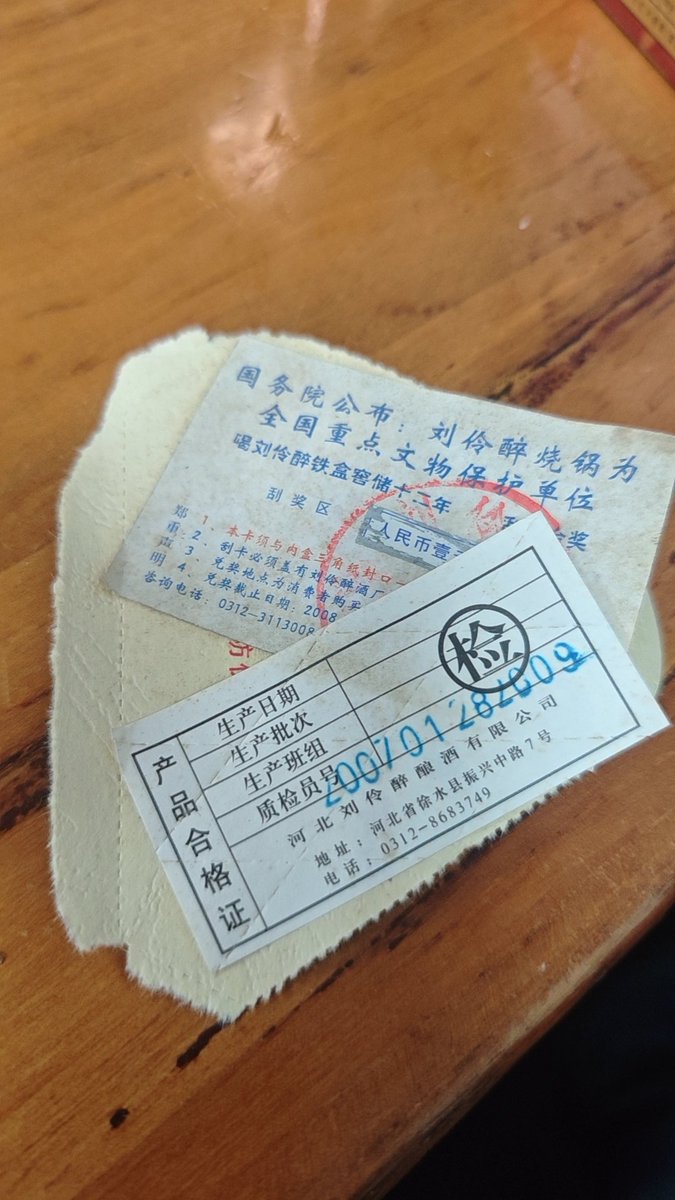 国务院公布：刘伶醉烧锅为
全国重点文物保护单位
喝刘伶醉铁盒窖储十二年
奖
刮奖区
人民币壹
郑重声明
1、本卡须与内盒三角纸封口一
2、刮卡必须盖有刘伶醉酒厂
3、兑奖地点为消费者购买
4、兑奖截止日期：2008
咨询电话：0312-3113008
产品合格证
生产日期
生产批次
生产班组
质检员号
检
200701282009
河北刘伶醉酿酒有限公司
地址：河北省徐水县振兴中路7号
电话：0312-8683749